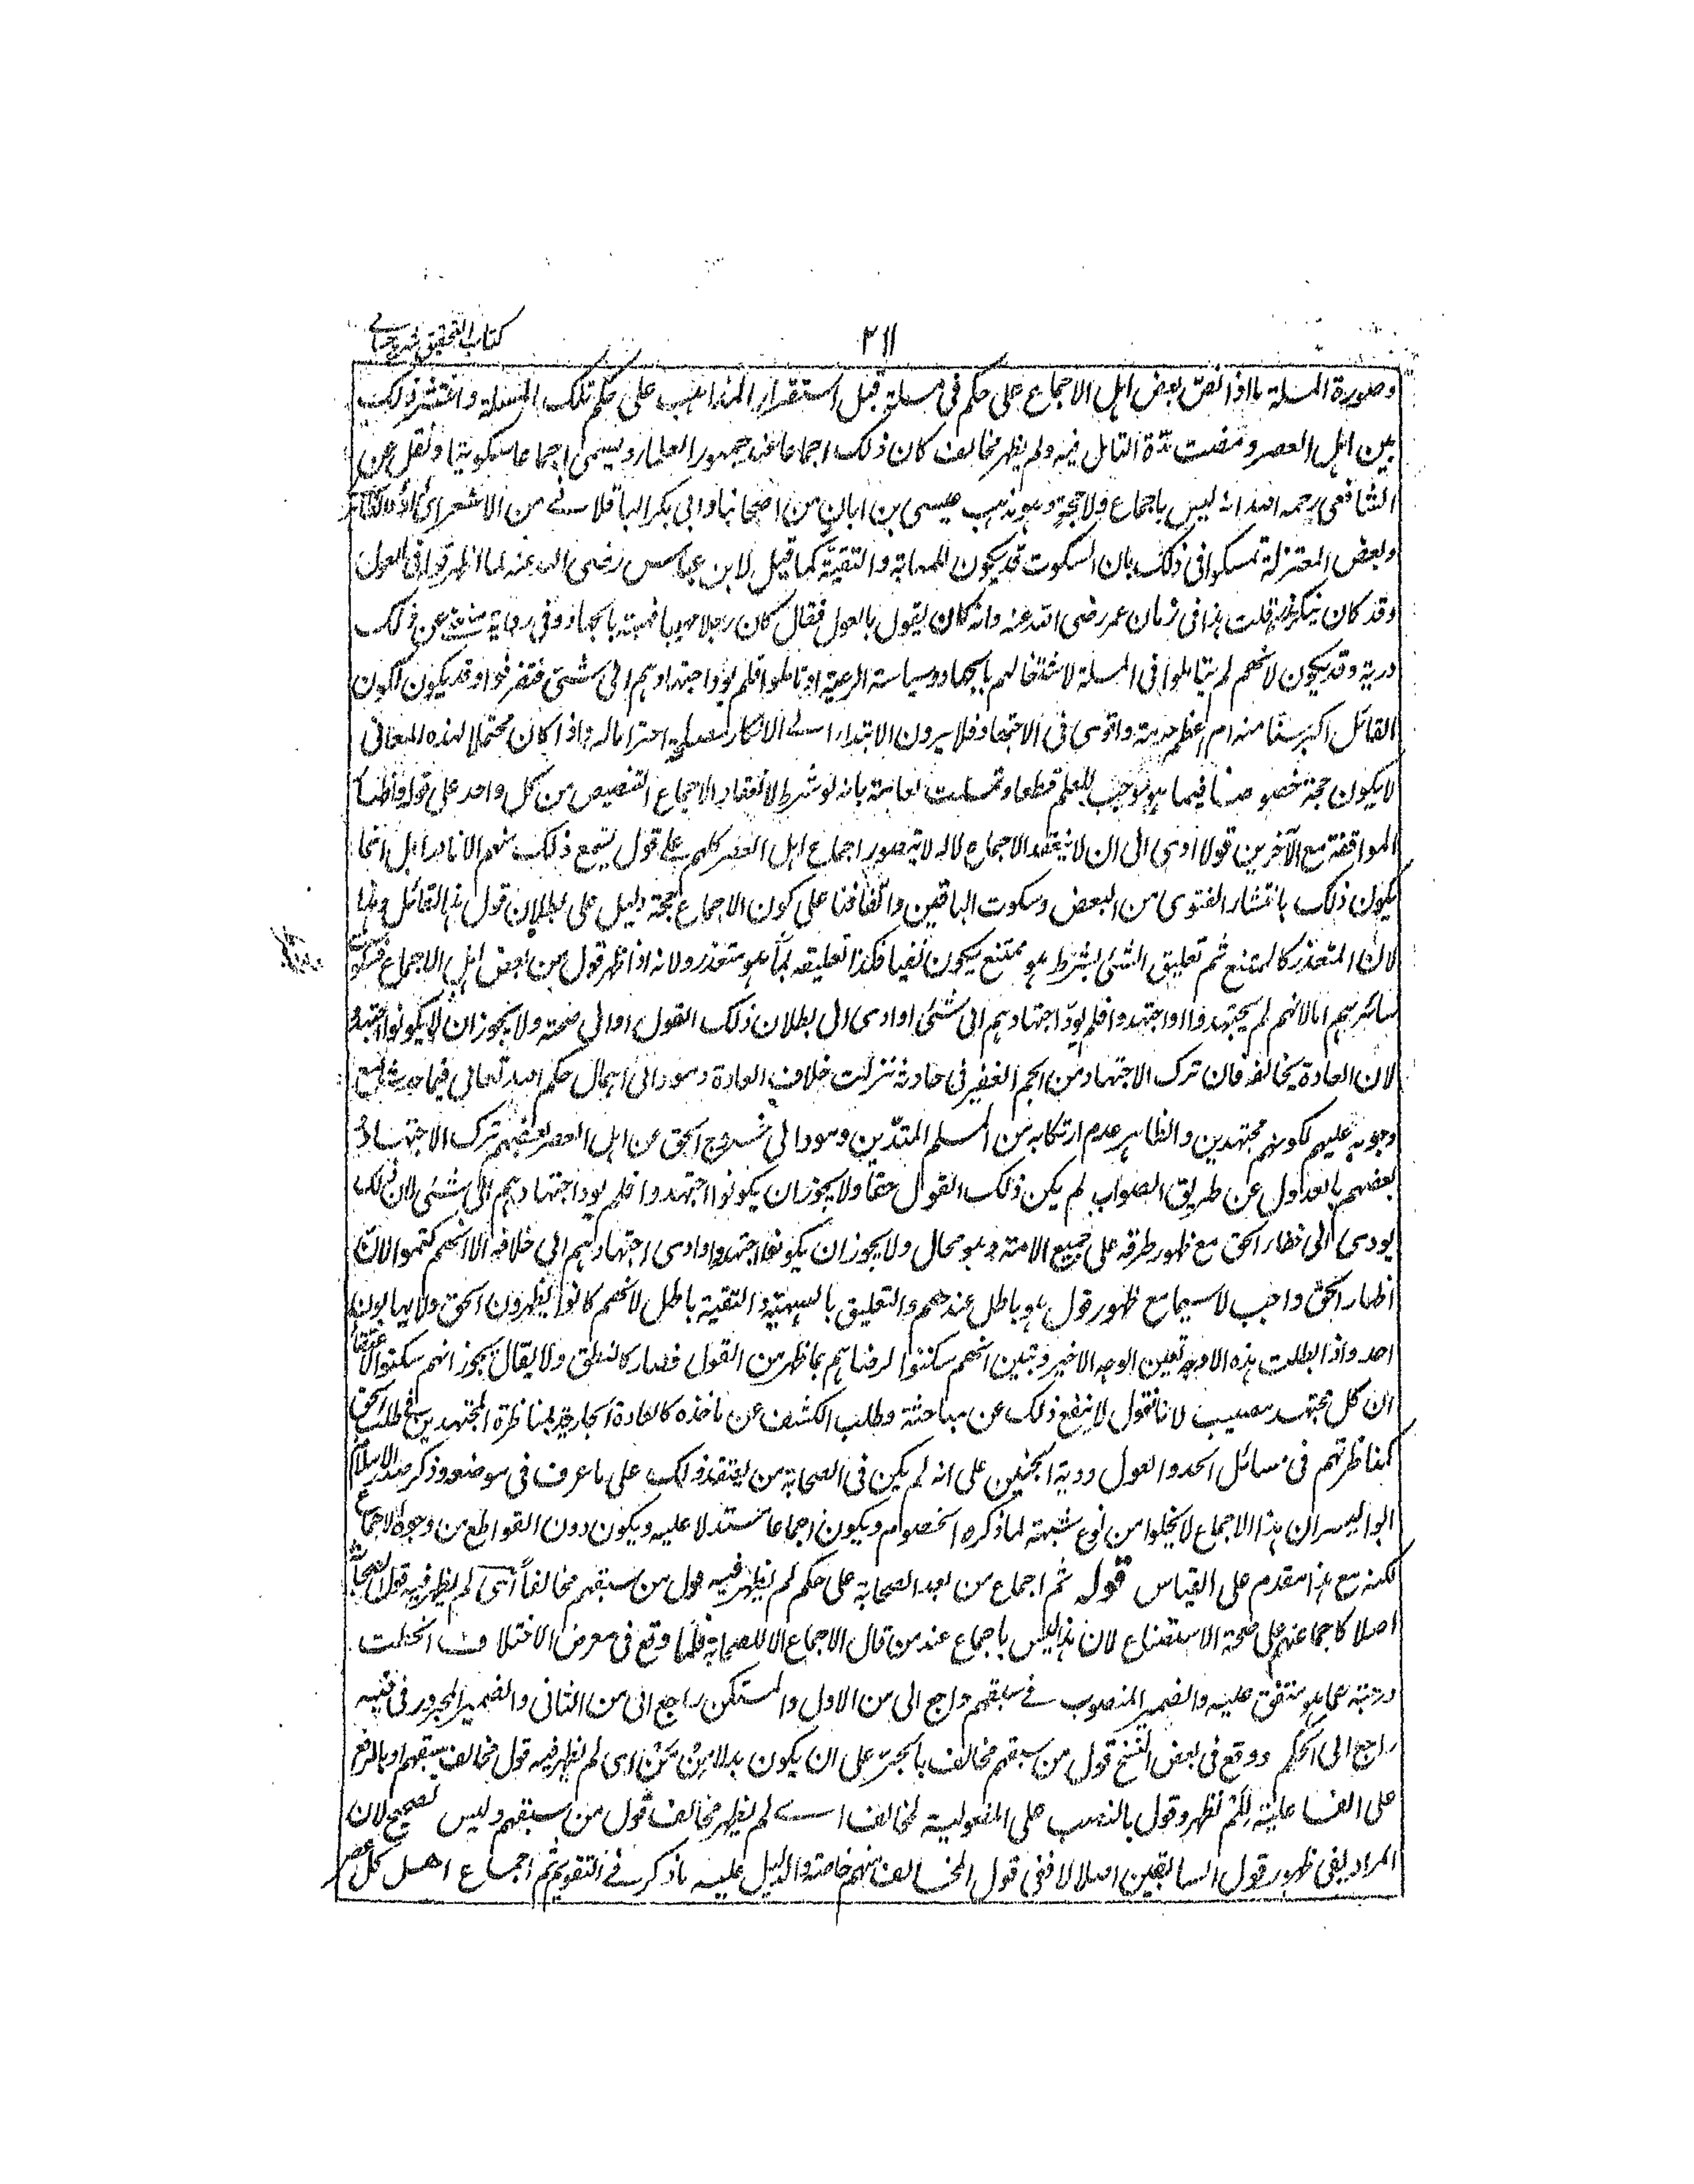 كتاب التحقيق شرح حسامي
٢١١
وصورة المسلة ما اذا نص بعض اهل الاجماع على حكم فى مسلة قبل استقرار المذاهب على حكم تلك المسلة وانتشر ذلك
بين اهل العصر ومضت مدة التامل فيه ولم يظهر مخالف كان ذلك اجماعا عند جمهور العلماء ويسمى اجماعا سكوتيا ونقل عن
الشافعى رحمه الله انه ليس باجماع ولا حجة وهو مذهب عيسى بن ابان من اصحابنا وابى بكر الباقلانے من الاشعرية
وبعض المعتزلة تمسكوا فى ذلك بان السكوت قد يكون للمهابة والتقية كما قيل لابن عباس رضى الله عنه لما اظهر قوله فى العول
وقد كان ينكره هلا قلت هذا فى زمان عمر رضى الله عنه وانه كان يقول بالعول فقال كان رجلا مهيبا فهبته بالجماد وفى رواية منعنى عن ذلك
درته وقد يكون لانهم لم يتاملوا فى المسلة لاشتغالهم بالجهاد وسياسة الرعية او تاملوا فلم يود اجتهادهم الى شئى فتفرقوا وقد يكون لكون
القائل اكبر سنا منه ام اعظم حرمة واقوى فى الاجتهاد فلا يرون الابتداء اسے الانكار مصلحة احتراما له واذا كان محتملا لهذه المعانى
لا يكون حجة خصوصا فيما هو موجب للعلم قطعا وتمسكت العامة بانه لو شرط لانعقاد الاجماع التنصيص من كل واحد على قوله واظهار
الموافقة مع الآخرين قولا ادى الى ان لا ينعقد الاجماع لانه لا يتصور اجماع اهل العصر كلهم على قول يسمع ذلك منهم الا نادرا بل انما
يكون ذلك بانتشار الفتوى من البعض وسكوت الباقين واتفاقنا على كون الاجماع حجة دليل على بطلان قول هذا القائل وهذا
لان المتعذر كالممتنع ثم تعليق الشئى بشرط هو ممتنع يكون نفيا فكذا تعليقه بما هو متعذر ولانه اذا ظهر قول من بعض اهل الاجماع فسكوت
سائرهم اما لانهم لم يجتهدوا او اجتهدوا فلم يود اجتهادهم الى شئى او ادى الى بطلان ذلك القول او الى صحته ولا يجوز ان لا يكونوا اجتهدوا
لان العادة يخالفه فان ترك الاجتهاد من الجم الغفير فى حادثة نزلت خلاف العادة ومود الى اهمال حكم الله تعالى فيما حدث مع
وجوبه عليهم لكونهم مجتهدين والظاهر عدم ارتكابه من المسلم المتدين ومود الى خروج الحق عن اهل العصر بعضهم بترك الاجتهاد و
بعضهم بالعدول عن طريق الصواب لم يكن ذلك القول حقا ولا يجوز ان يكونوا اجتهدوا فلم يود اجتهادهم الى شئى لان ذلك
يودى الى خفاء الحق مع ظهور طرقه على جميع الامة وهو محال ولا يجوز ان يكونوا اجتهدوا وادى اجتهادهم الى خلافه الا انهم كتموا لان
اظهار الحق واجب لا سيما مع ظهور قول هو باطل عندهم والتعليق بالهيبة والتقية باطل لانهم كانوا يظهرون الحق ولا يهابون
احد واذا بطلت هذه الاوجه تعين الوجه الاخير وتبين انهم سكتوا لرضاهم بما ظهر من القول فصار كالنطق ولا يقال يجوز انهم سكتوا لاعتقاد
ان كل مجتهد مصيب لانا نقول لا يمنع ذلك عن مباحثة وطلب الكشف عن ماخذه كالعادة الجارية بمناظرة المجتهدين فى طلب الحق
كمناظرتهم فى مسائل الجد والعول ودية الجنين على انه لم يكن فى الصحابة من يعتقد ذلك على ما عرف فى موضعه وذكر صدر الاسلام
ابو اليسر ان هذا الاجماع لا يخلوا من نوع شبهة لما ذكره الخصوم ويكون اجماعا مستدلا عليه ويكون دون القواطع من وجوه الاجماع
لكنه مع هذا مقدم على القياس قوله ثم اجماع من بعد الصحابة على حكم لم يظهر فيه قول من سبقهم مخالفا اى لم يظهر فيه قول الصحابة
اصلا كاجماعهم على صحة الاستصناع لان هذا ليس باجماع عند من قال الاجماع الا للصحابة فلما وقع فى معرض الاختلاف انحطت
درجته عما هو متفق عليه والضمير المنصوب فے سبقهم راجع الى من الاول والمستكن راجع الى من الثانى والضمير المجرور فى فيه
راجع الى الحكم ووقع فى بعض النسخ قول من سبقهم مخالف بالجر على ان يكون بدلا من من اى لم يظهر فيه قول مخالف سبقهم او بالرفع
على الفاعلية للم يظهر وقول بالنصب على المفعولية لمخالف اے لم يظهر مخالف قول من سبقهم وليس بصحيح لان
المراد نفى ظهور قول السابقين اصلا لا نفى قول المخالف منهم خاصة والدليل عليه ما ذكر فے التقويم ثم اجماع اهل كل عصر